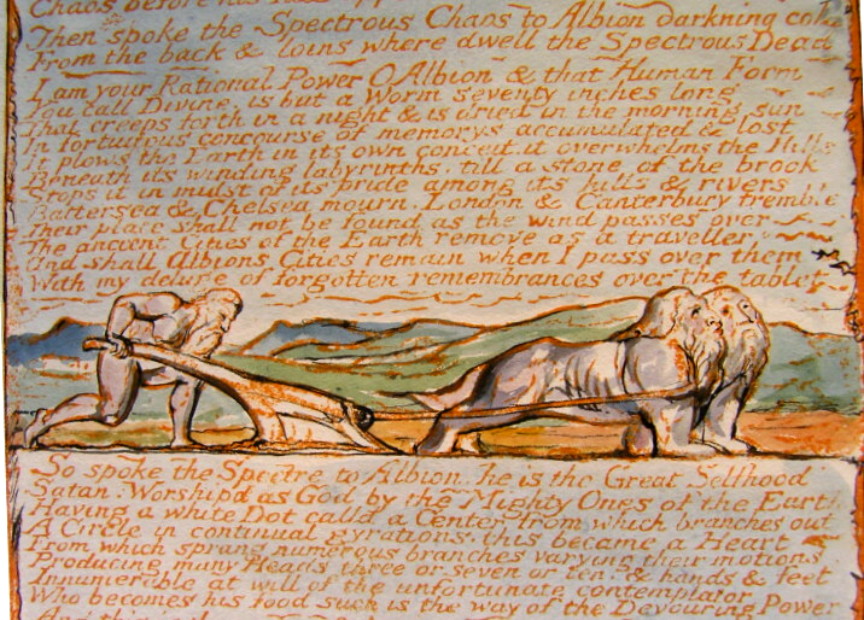 Chaos before his
Then spoke the Spectrous Chaos to Albion darkning cold
From the back & loins where dwell the Spectrous Dead
I am your Rational Power O Albion & that Human Form
You call Divine, is but a Worm seventy inches long
That creeps forth in a night & is dried in the morning sun
In fortuitous concourse of memorys accumulated & lost
It plows the Earth in its own conceit, it overwhelms the Hills
Beneath its winding labyrinths, till a stone of the brook
Stops it in midst of its pride among its hills & rivers
Battersea & Chelsea mourn, London & Canterbury tremble
Their place shall not be found as the wind passes over
The ancient Cities of the Earth remove as a traveller
And shall Albions Cities remain when I pass over them
With my deluge of forgotten remembrances over the tablet
So spoke the Spectre to Albion. he is the Great Selfhood
Satan: Worshipd as God by the Mighty Ones of the Earth
Having a white Dot calld a Center from which branches out
A Circle in continual gyrations. this became a Heart
From which sprang numerous branches varying their motions
Producing many Heads three or seven or ten. & hands & feet
Innumerable at will of the unfortunate contemplator
Who becomes his food such is the way of the Devouring Power
And this is